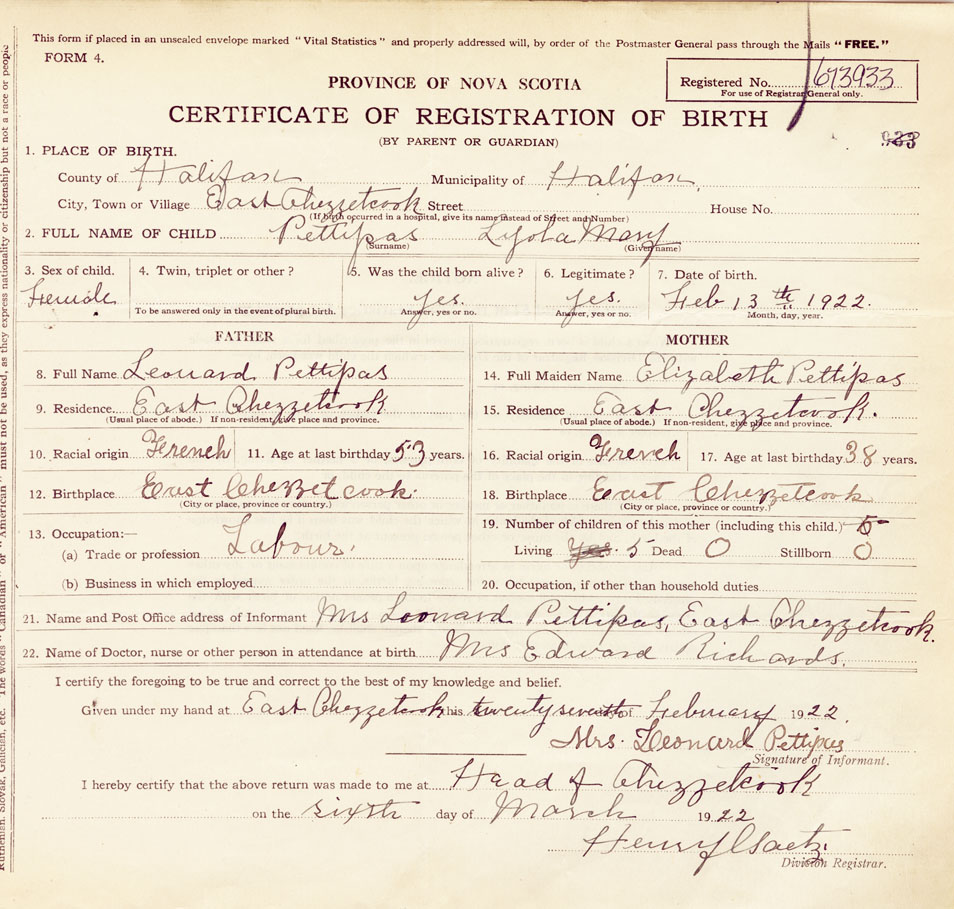 This form if placed in an unsealed envelope marked "Vital Statistics" and properly addressed will, by order of the Postmaster General pass through the Mails "FREE."
FORM 4.
Registered No. 673933
For use of Registrar General only.
PROVINCE OF NOVA SCOTIA
CERTIFICATE OF REGISTRATION OF BIRTH
(BY PARENT OR GUARDIAN)
933
1. PLACE OF BIRTH.
County of Halifax Municipality of Halifax
City, Town or Village East Chezzetcook Street House No.
(If birth occurred in a hospital, give its name instead of Street and Number)
2. FULL NAME OF CHILD Pettipas Lyola Mary
(Surname) (Given name)
3. Sex of child. 4. Twin, triplet or other? 5. Was the child born alive? 6. Legitimate? 7. Date of birth.
Female yes. yes. Feb 13th 1922.
To be answered only in the event of plural birth. Answer, yes or no. Answer, yes or no. Month, day, year.
FATHER
8. Full Name Leonard Pettipas
9. Residence East Chezzetcook
(Usual place of abode.) If non-resident, give place and province.
10. Racial origin French 11. Age at last birthday 53 years.
12. Birthplace East Chezzetcook.
(City or place, province or country.)
13. Occupation:—
(a) Trade or profession Labour.
(b) Business in which employed
MOTHER
14. Full Maiden Name Elizabeth Pettipas
15. Residence East Chezzetcook.
(Usual place of abode.) If non-resident, give place and province.
16. Racial origin French 17. Age at last birthday 38 years.
18. Birthplace East Chezzetcook
(City or place, province or country.)
19. Number of children of this mother (including this child.) 5
Living Yes. 5 Dead 0 Stillborn 0
20. Occupation, if other than household duties
21. Name and Post Office address of Informant Mrs Leonard Pettipas, East Chezzetcook.
22. Name of Doctor, nurse or other person in attendance at birth Mrs Edward Richards.
I certify the foregoing to be true and correct to the best of my knowledge and belief.
Given under my hand at East Chezzetcook this twenty seventh of February 1922.
Mrs. Leonard Pettipas
Signature of Informant.
I hereby certify that the above return was made to me at Head of Chezzetcook
on the sixth day of March 1922
Henry
Division Registrar.
Ruthenian, Slovak, Galician, etc. The words "Canadian" or "American" must not be used, as they express nationality or citizenship but not a race or people